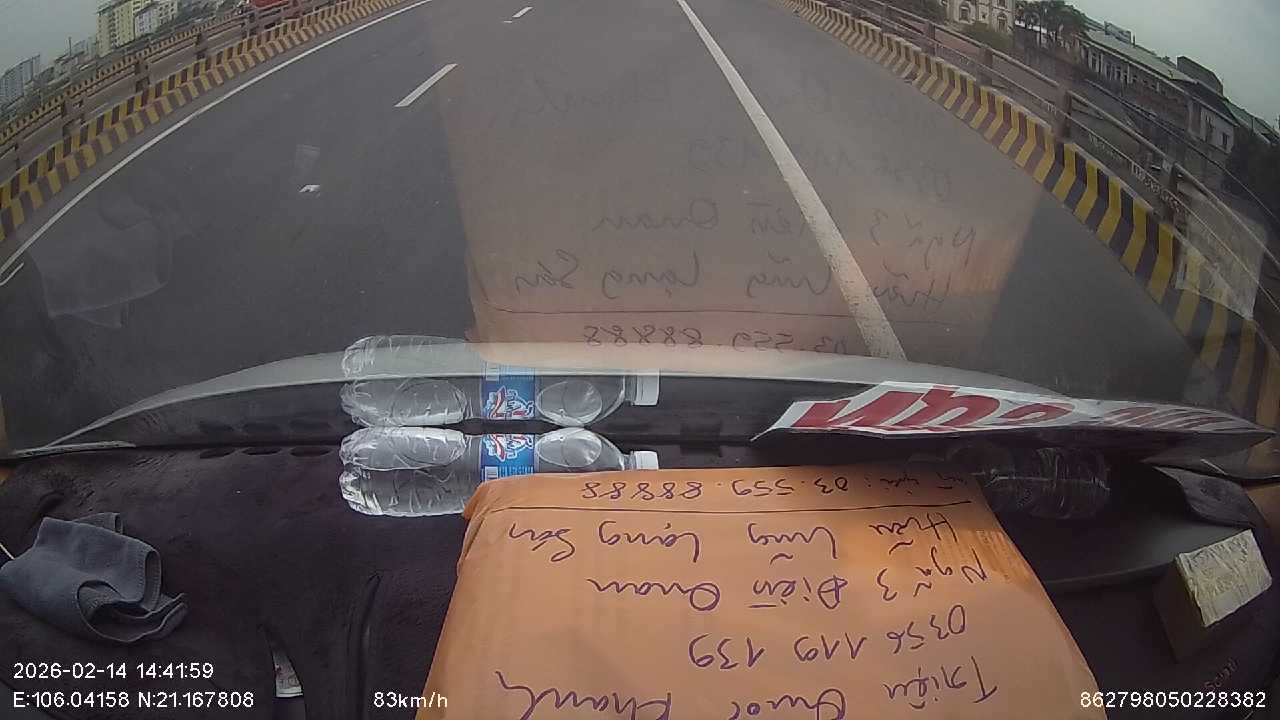 Triệu Quốc Khánh
0356 119 139
Ngã 3 Điền Quan
Hữu Lũng Lạng Sơn
gửi: 03.559.88888
2026-02-14 14:41:59
E:106.04158 N:21.167808 83km/h 862798050228382